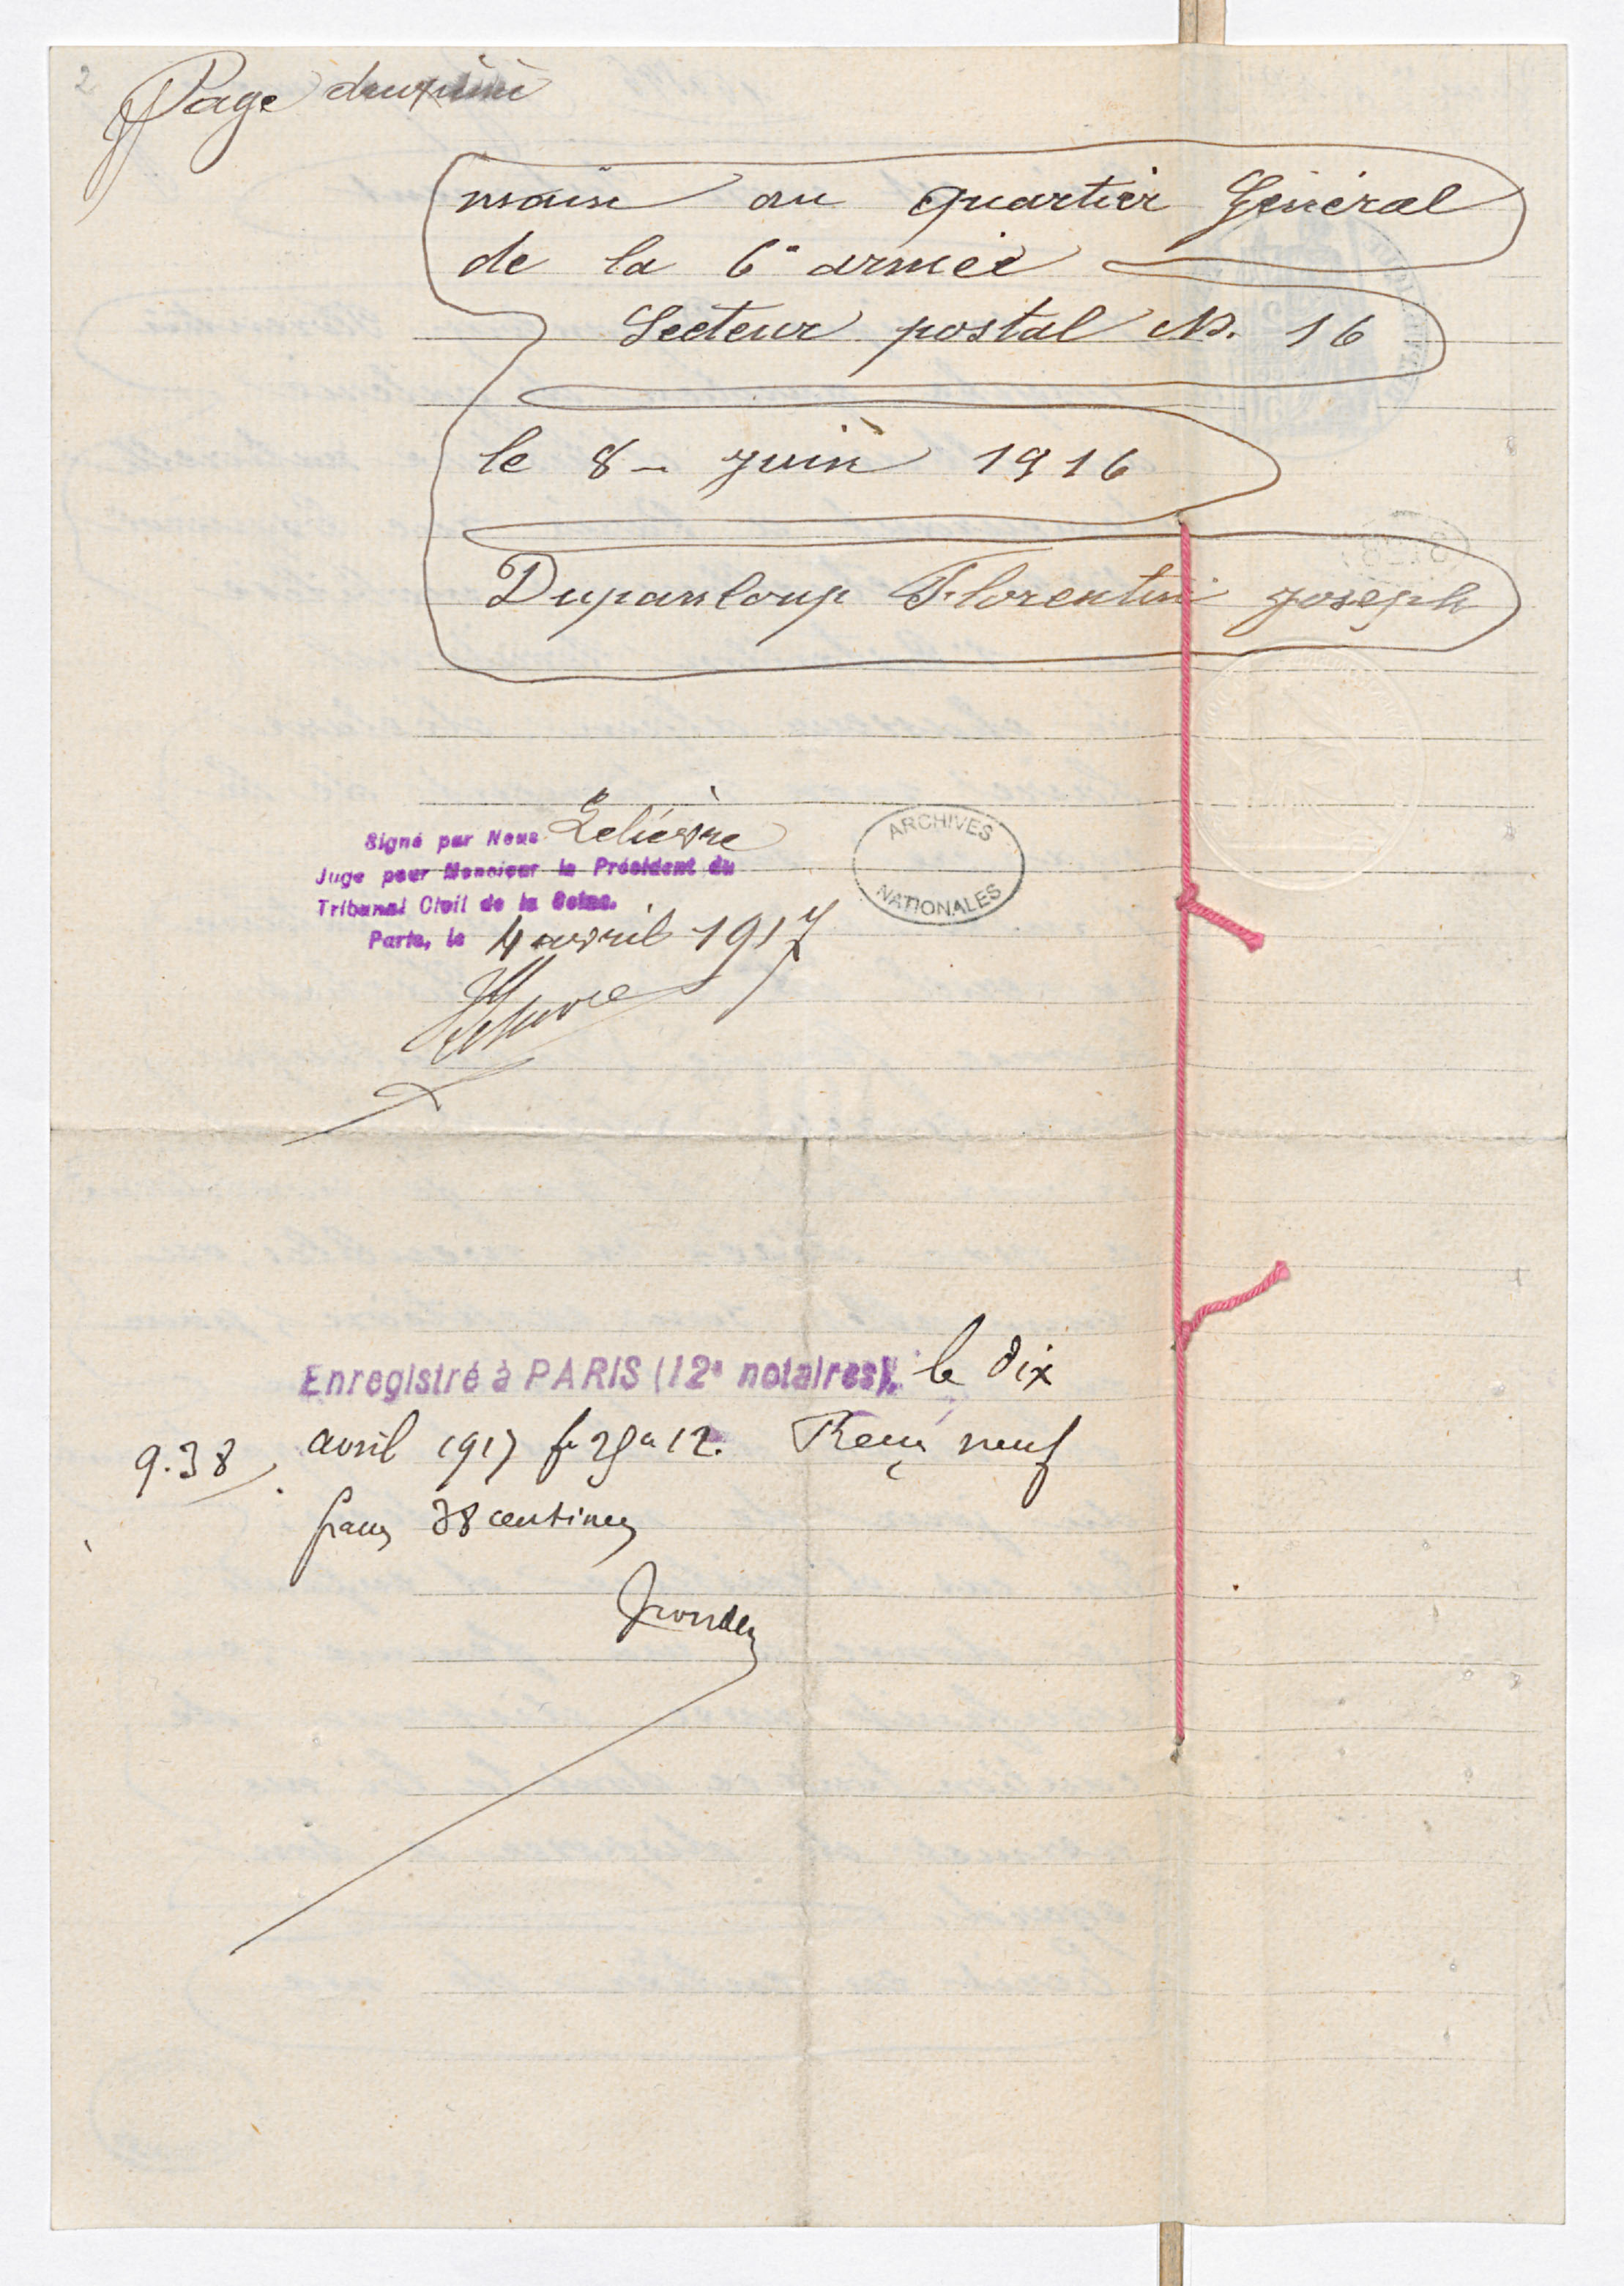 2
Page deuxième
main au quartier Général
de la 6e armée
Secteur postal No. 16
le 8 - juin 1916
Dupanloup Florentin joseph
Signé par Nous Lelièvre
Juge pour Monsieur le Président du
Tribunal Civil de la Seine.
Paris, le 4 avril 1917
ARCHIVES
NATIONALES
Enregistré à PARIS (12e notaires), le dix
avril 1917 fo 25 c 12. Reçu neuf
9.38
francs 38 centimes